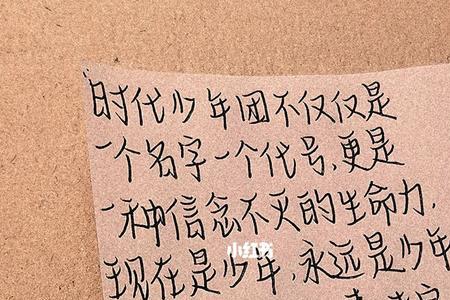 时代少年团不仅仅是
一个名字一个代号,更是
一种信念不灭的生命力,
小红书
现在是少年,永远是少年